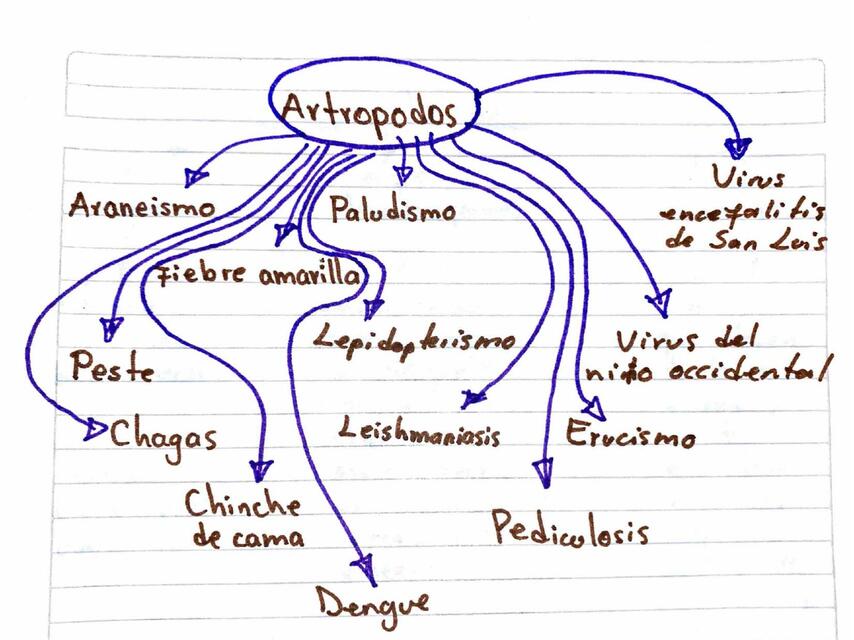 Artropodos
Virus
encefalitis
de San Luis
Araneismo
Paludismo
Fiebre amarilla
Lepidopterismo
Virus del
nilo occidental
Peste
Chagas
Leishmaniasis
Erucismo
Chinche
de cama
Pediculosis
Dengue